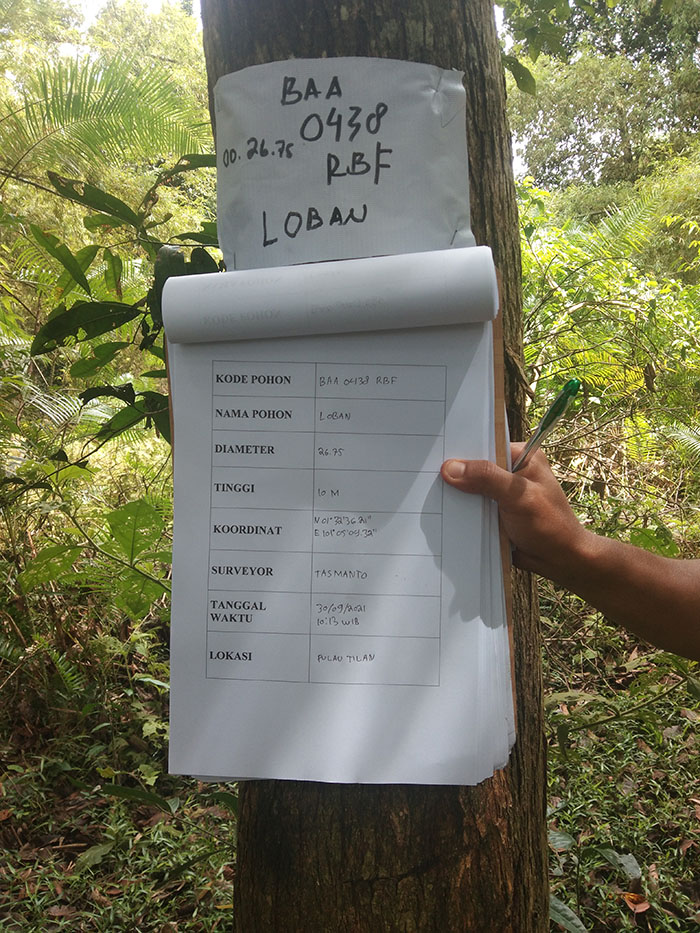 BAA
0438
00.26.75
RBF
LOBAN
KODE POHON BAA 0438 RBF
NAMA POHON LOBAN
DIAMETER 26.75
TINGGI 10 M
KOORDINAT N 01°32'36.20"
E 101°05'09.32"
SURVEYOR TASMANTO
TANGGAL 30/09/2021
WAKTU 10:13 WIB
LOKASI PULAU TILAN